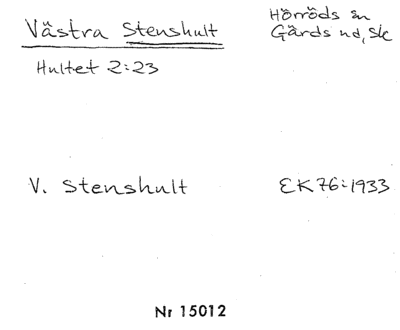 Västra Stenshult
Hörröds sn
Gärds hd, Sk
Hultet 2:23
V. Stenshult
EK 76:1933
Nr 15012